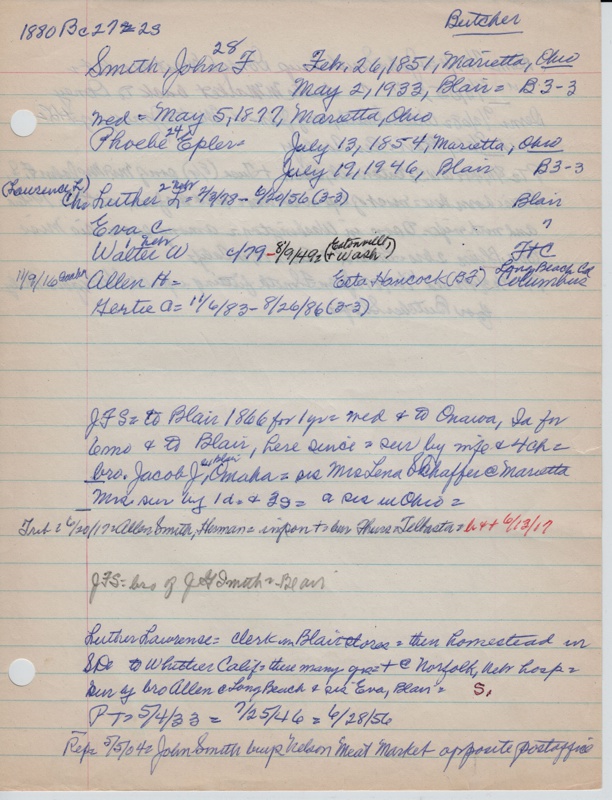 Butcher
1880 Bc 27 = 23
28
Smith, John F Feb. 26, 1851, Marietta, Ohio
May 2, 1933, Blair = B 3-3
wed = May 5, 1877, Marietta, Ohio
24
Phoebe Epler = July 13, 1854, Marietta, Ohio
July 19, 1946, Blair B3-3
(Lawrence L)
Ch = Luther L = 2/3/78 - 6/20/56 (3-3) Blair
2 Nebr
Eva C ?
1 Nebr
Walter W c/79 - 8/9/49 = (Eatonville, + Wash) F+C
Long Beach, Cal
11/9/16 Omaha Allen H = Esta Hancock (BF) Columbus
Gertie A = 11/6/83 - 8/26/86 (3-3)
JFS = to Blair 1866 for 1 yr = wed + to Onawa, Ia for
6 mo + to Blair, here since = sur by wife + 4 ch =
bro. Jacob J, Omaha = sis Mrs Lena Schaffer @ Marietta
Mrs. sur by 1 d. + 3 s = a sis in Ohio =
Trib = 6/20/17 = Allen Smith, Herman = + bur Thurs = Telbasta = 6/13/17
JFS = bro of J G Smith = Blair
Luther Lawrense = clerk in Blair stores = then homestead in
SD = to Whittier Calif = then many yrs = + @ Norfolk, Nebr hosp =
sur by bro Allen @ Long Beach + sis Eva, Blair = S.
P T = 5/4/33 = 7/25/46 = 6/28/56
Rep = 5/5/04 = John Smith buys Nelson Meat Market opposite postoffice